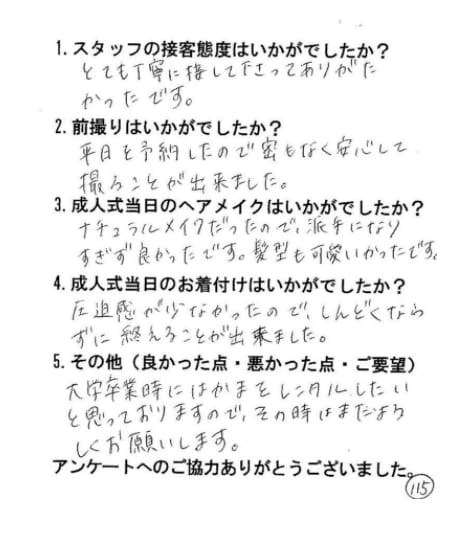 1. スタッフの接客態度はいかがでしたか？
とても丁寧に接して下さってありがた
かったです。
2. 前撮りはいかがでしたか？
平日を予約したので密もなく安心して
撮ることが出来ました。
3. 成人式当日のヘアメイクはいかがでしたか？
ナチュラルメイクだったので、派手になり
すぎず良かったです。髪型も可愛いかったです。
4. 成人式当日のお着付けはいかがでしたか？
圧迫感が少なかったので、しんどくなら
ずに終えることが出来ました。
5. その他（良かった点・悪かった点・ご要望）
大学卒業時にはかまをレンタルしたい
と思っておりますので、その時はまたよろ
しくお願いします。
アンケートへのご協力ありがとうございました。
115